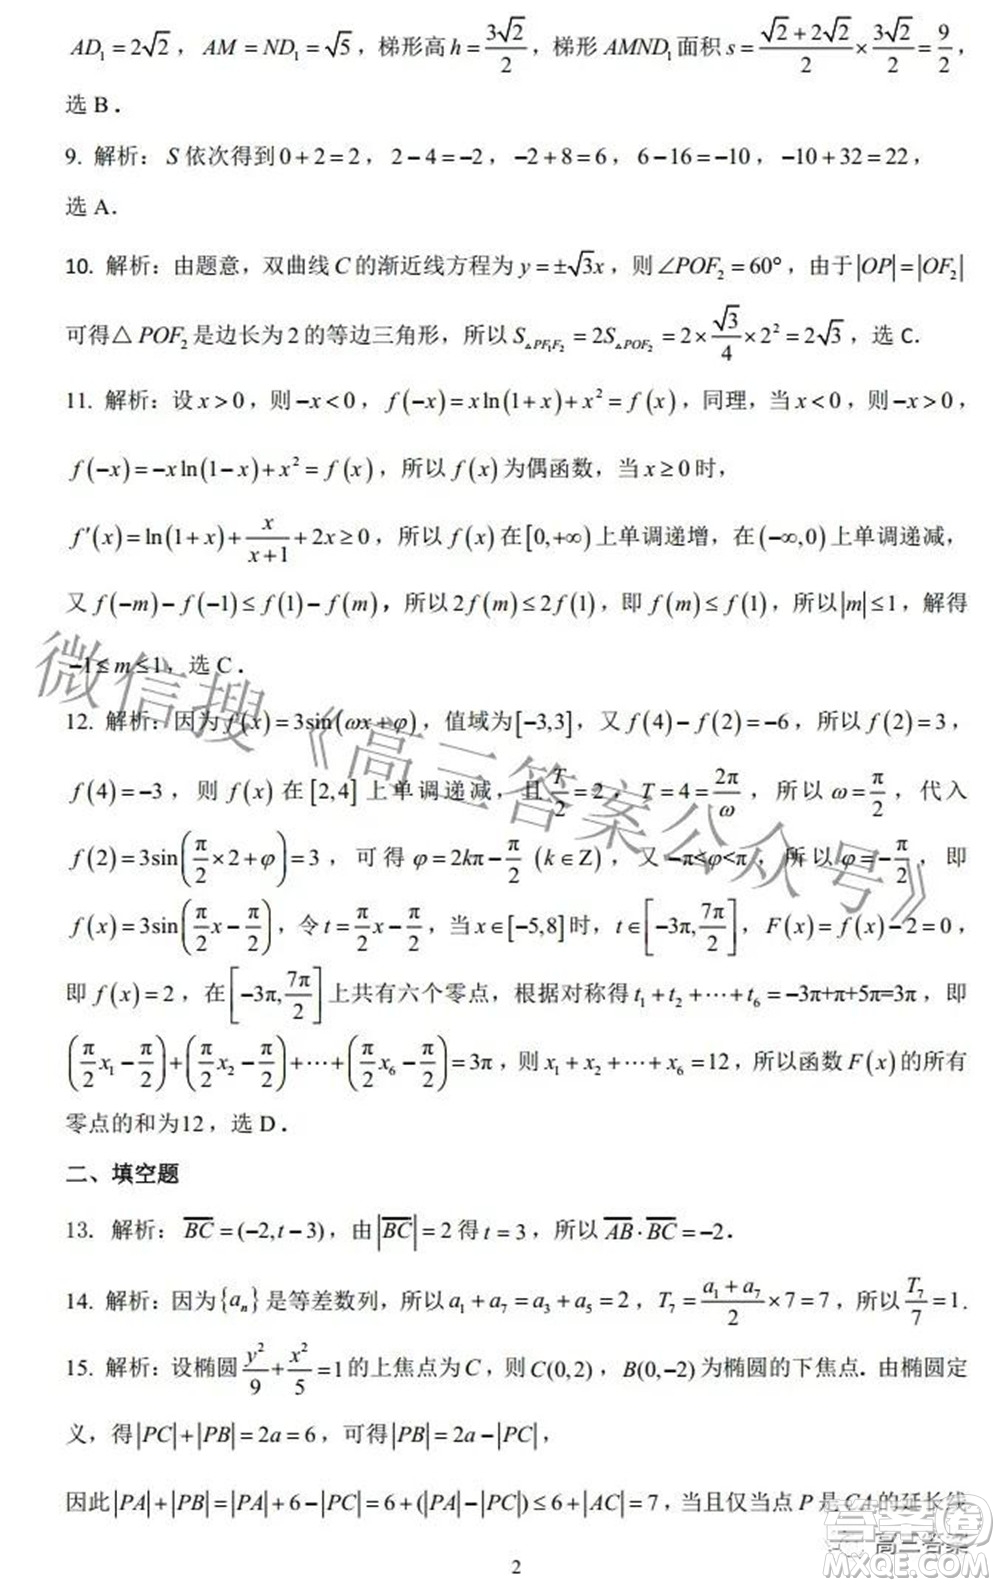 AD₁=2√2，AM=ND₁=√5，梯形高h=3√2/2，梯形AMND₁面积s=(√2+2√2)/2×3√2/2=9/2，
选B．
9. 解析：S依次得到0+2=2，2−4=−2，−2+8=6，6−16=−10，−10+32=22，
选A.
10. 解析：由题意，双曲线C的渐近线方程为y=±√3x，则∠POF₂=60°，由于|OP|=|OF₂|
可得△POF₂是边长为2的等边三角形，所以S△PF₁F₂=2S△POF₂=2×√3/4×2²=2√3，选C.
11. 解析：设x>0，则−x<0，f(−x)=xln(1+x)+x²=f(x)，同理，当x<0，则−x>0，
f(−x)=−xln(1−x)+x²=f(x)，所以f(x)为偶函数，当x≥0时，
f′(x)=ln(1+x)+x/(x+1)+2x≥0，所以f(x)在[0,+∞)上单调递增，在(−∞,0)上单调递减，
又f(−m)−f(−1)≤f(1)−f(m)，所以2f(m)≤2f(1)，即f(m)≤f(1)，所以|m|≤1，解得
−1≤m≤1，选C．
12. 解析：因为f(x)=3sin(ωx+φ)，值域为[−3,3]，又f(4)−f(2)=−6，所以f(2)=3，
f(4)=−3，则f(x)在[2,4]上单调递减，且T/2=2，T=4=2π/ω，所以ω=π/2，代入
f(2)=3sin(π/2×2+φ)=3，可得φ=2kπ−π/2 (k∈Z)，又−π<φ<π，所以φ=−π/2，即
f(x)=3sin(π/2x−π/2)，令t=π/2x−π/2，当x∈[−5,8]时，t∈[−3π,7π/2]，F(x)=f(x)−2=0，
即f(x)=2，在[−3π,7π/2]上共有六个零点，根据对称得t₁+t₂+⋯+t₆=−3π+π+5π=3π，即
(π/2x₁−π/2)+(π/2x₂−π/2)+⋯+(π/2x₆−π/2)=3π，则x₁+x₂+⋯+x₆=12，所以函数F(x)的所有
零点的和为12，选D．
二、填空题
13. 解析：BC=(−2,t−3)，由|BC|=2得t=3，所以AB·BC=−2．
14. 解析：因为{aₙ}是等差数列，所以a₁+a₇=a₃+a₅=2，T₇=(a₁+a₇)/2×7=7，所以T₇/7=1.
15. 解析：设椭圆y²/9+x²/5=1的上焦点为C，则C(0,2)，B(0,−2)为椭圆的下焦点．由椭圆定
义，得|PC|+|PB|=2a=6，可得|PB|=2a−|PC|，
因此|PA|+|PB|=|PA|+6−|PC|=6+(|PA|−|PC|)≤6+|AC|=7，当且仅当点P是CA的延长线
2
微信搜《高三答案公众号》
高三答案
答案圈
MXQE.COM